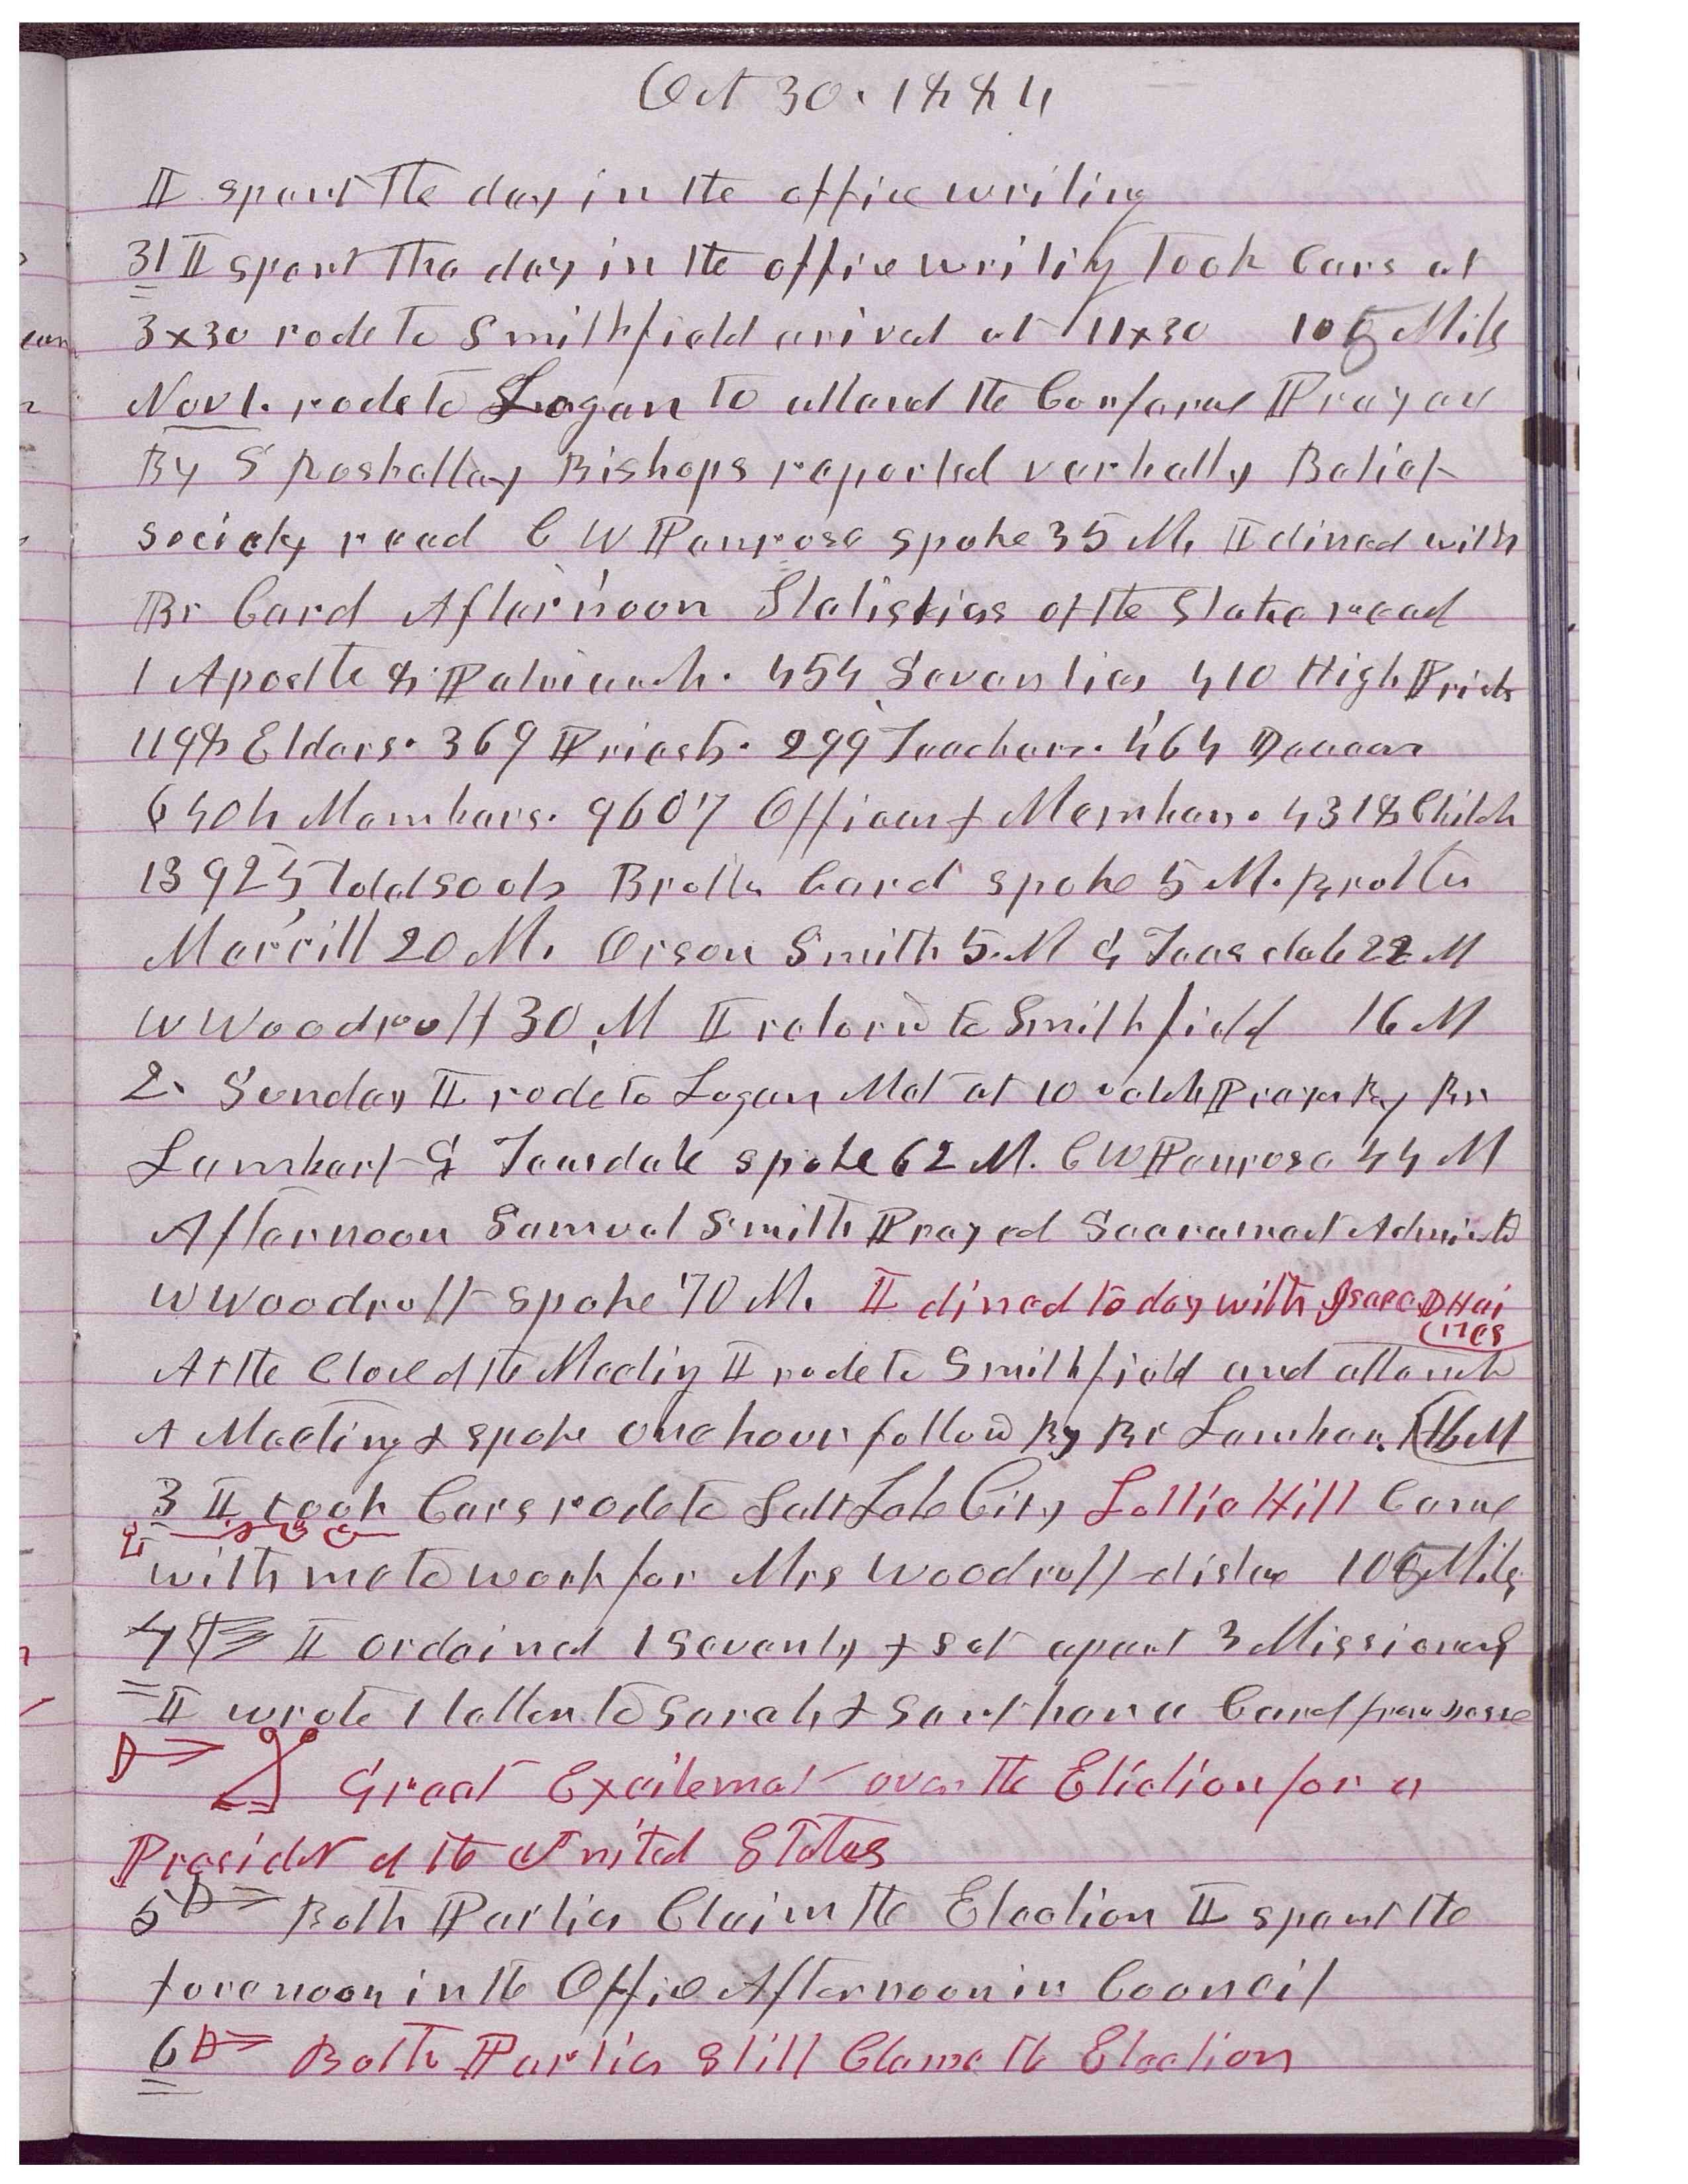 Oct 30. 1884
I spent the day in the office writing
31 I spent the day in the office writing took Cars at
3x30 rode to Smithfield arived at 11x30 105 Miles
Nov 1. rode to Logan to attend the Conference Prayer
By S Roskelley Bishops reported verbally Relief
society read C W Penrose spoke 35 M. I dined with
Br Card Afternoon Statistics of the Stake read
1 Apostle & Patriarch. 454 Seventies 410 High Priests
1198 Elders. 369 Priests. 299 Teachers. 464 Deacons
6404 Members. 9607 Officers & Members. 4318 Childn
13925 Total souls Brother Card spoke 5 M. Brother
Merrill 20 M. Orson Smith 5 M G Teasdale 22 M
W Woodruff 30 M I returnd to Smithfield 16 M
2. Sunday I rode to Logan Met at 10 oclok Prayer By Br
Lambert G Teasdale spoke 62 M. C W Penrose 44 M
Afternoon Samuel Smith Prayed Sacrament Administd
W Woodruff spoke 70 M. I dined to day with Isaac D Hai
nes
At the Close of the Meeting I rode to Smithfield and attended
A Meeting & spoke one hour followd By Br Lambert 16 M
3 I took Cars rode to Salt Lake City Lottie Hill Came
with me to work for Mrs Woodruff distance 105 Miles
4 I ordained 1 Seventy & set apart 3 Missionaries
I wrote 1 letter to Sarah & sent her a Card from
Great Excitement over the Election for a
President of the United States
5 Both Parties Claim the Election I spent the
forenoon in the Office Afternoon in Council
6 Both Parties still Clame the Election